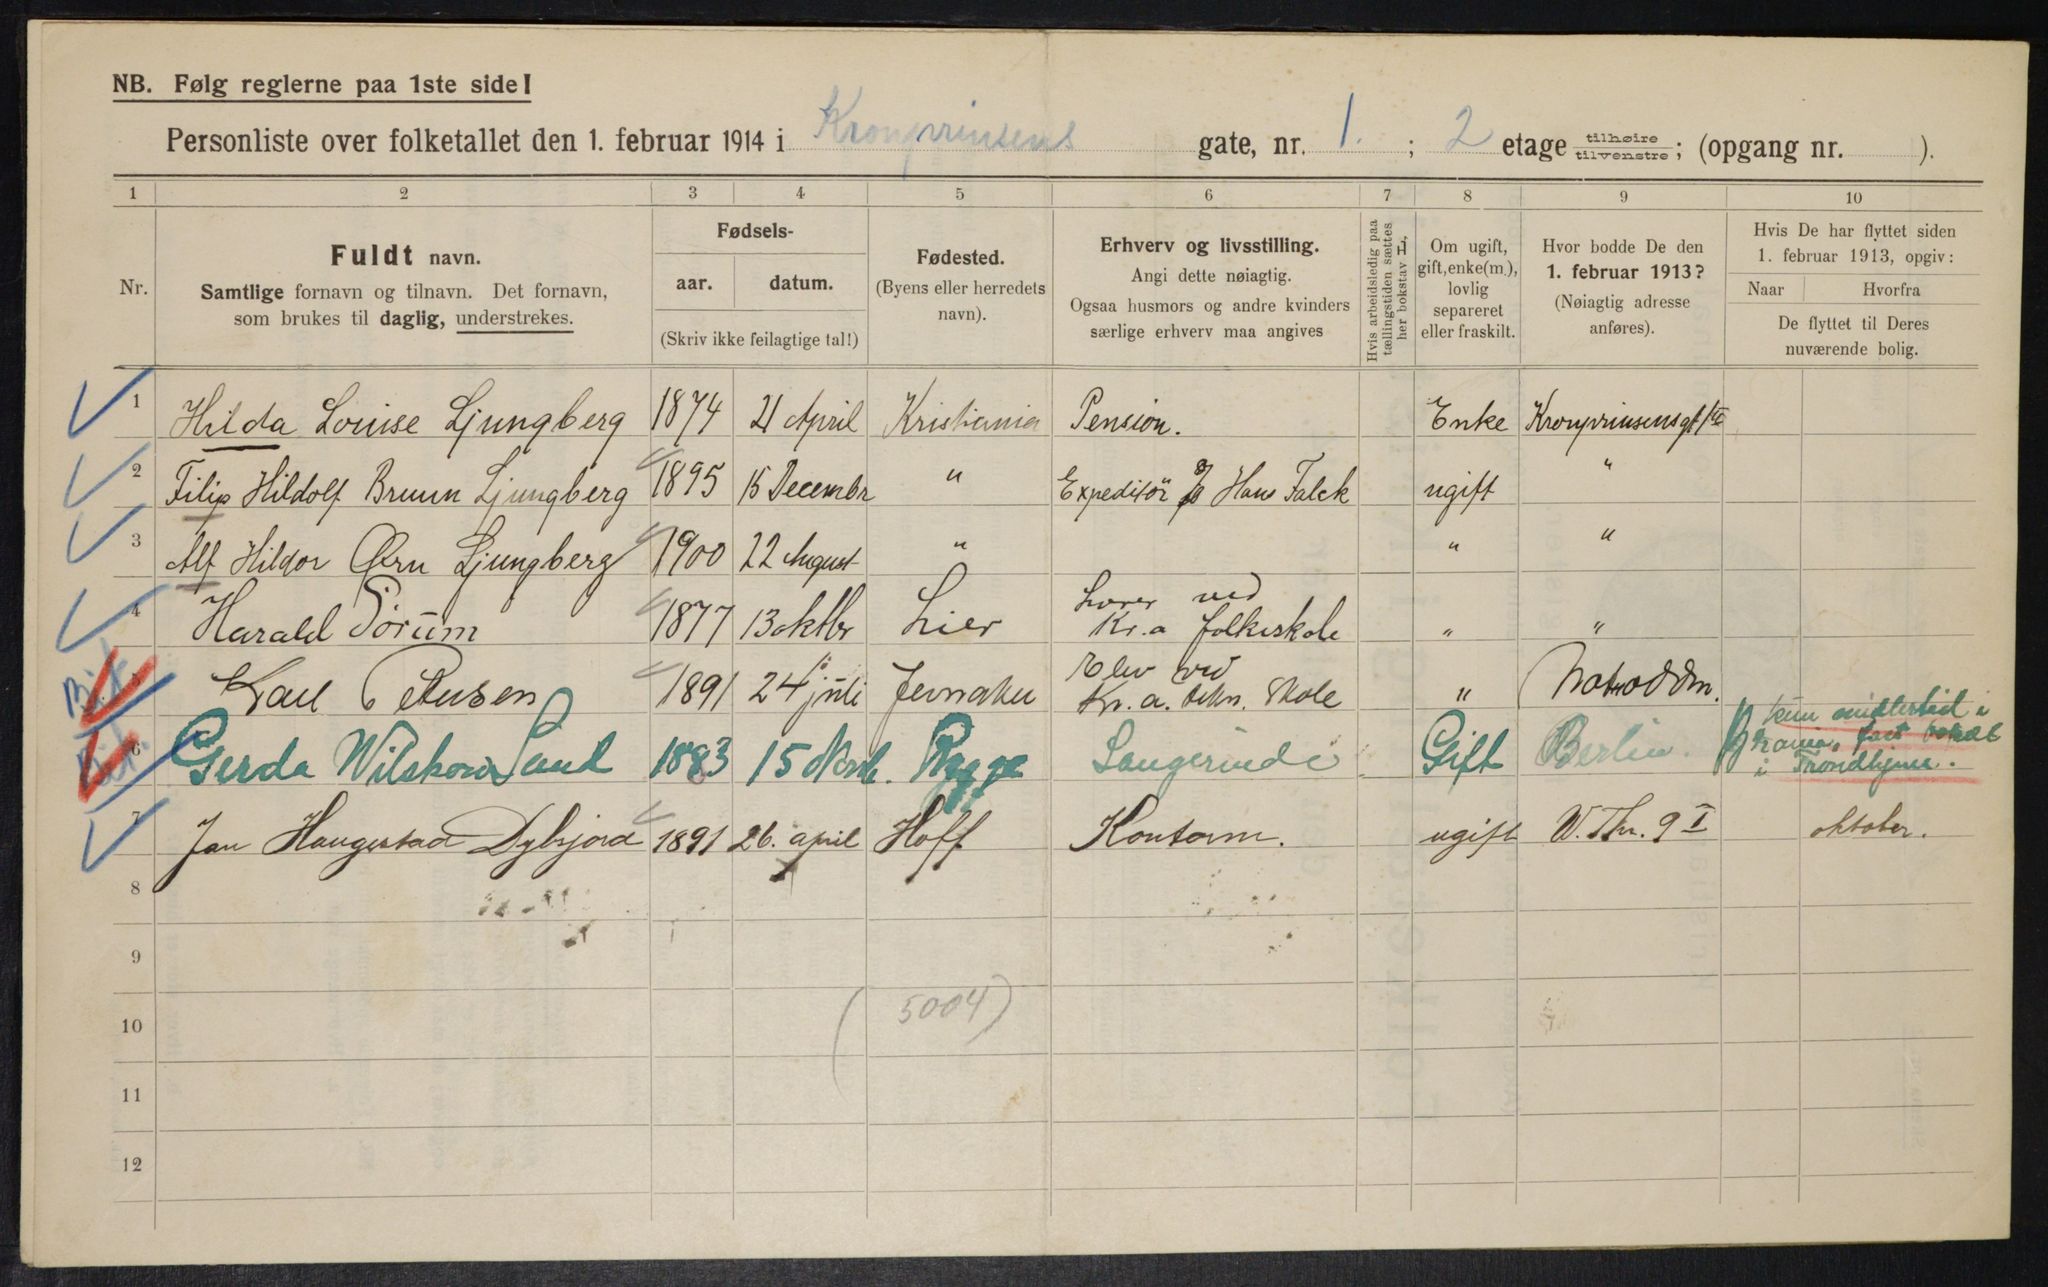 NB. Følg reglerne paa 1ste side!
Personliste over folketallet den 1. februar 1914 i Kronprinsens gate, nr. 1. ; 2 etage tilhøire tilvenstre; (opgang nr. ).
1 2 3 4 5 6 7 8 9 10
Nr.
Fuldt navn.
Samtlige fornavn og tilnavn. Det fornavn,
som brukes til daglig, understrekes.
Fødsels-
aar. datum.
(Skriv ikke feilagtige tal!)
Fødested.
(Byens eller herredets
navn).
Erhverv og livsstilling.
Angi dette nøiagtig.
Ogsaa husmors og andre kvinders
særlige erhverv maa angives
Hvis arbeidsledig paa
tællingstiden sættes
her bokstav L.
Om ugift,
gift, enke(m.),
lovlig
separeret
eller fraskilt.
Hvor bodde De den
1. februar 1913?
(Nøiagtig adresse
anføres).
Hvis De har flyttet siden
1. februar 1913, opgiv:
Naar Hvorfra
De flyttet til Deres
nuværende bolig.
1 Hilda Louise Ljungberg 1874 21 April Kristiania Pension. Enke Kronprinsensgt 1 II
2 Filip Hildolf Bruun Ljungberg 1895 15 Decembr " Expeditör Hans Falck ugift "
3 Alf Hildor Ørn Ljungberg 1900 22 August " " "
4 Harald Sörum 1877 13 oktbr Lier Lærer ved
Kr.a folkeskole " "
5 Karl Petersen 1891 24 juli Jevnaker Elev ved
Kr. a. tekn. skole " Notodden.
6 Gerda Wilskow Sand 1883 15 Rygge Sangerinde Gift Berlin. kun midlertid i
Krania, fast bosat
i Trondhjem.
7 Jan Haugestad Dybsjord 1891 26. april Hoff Kontorm. ugift W. Thr. 9 I oktober.
8
9
10 (5004)
11
12